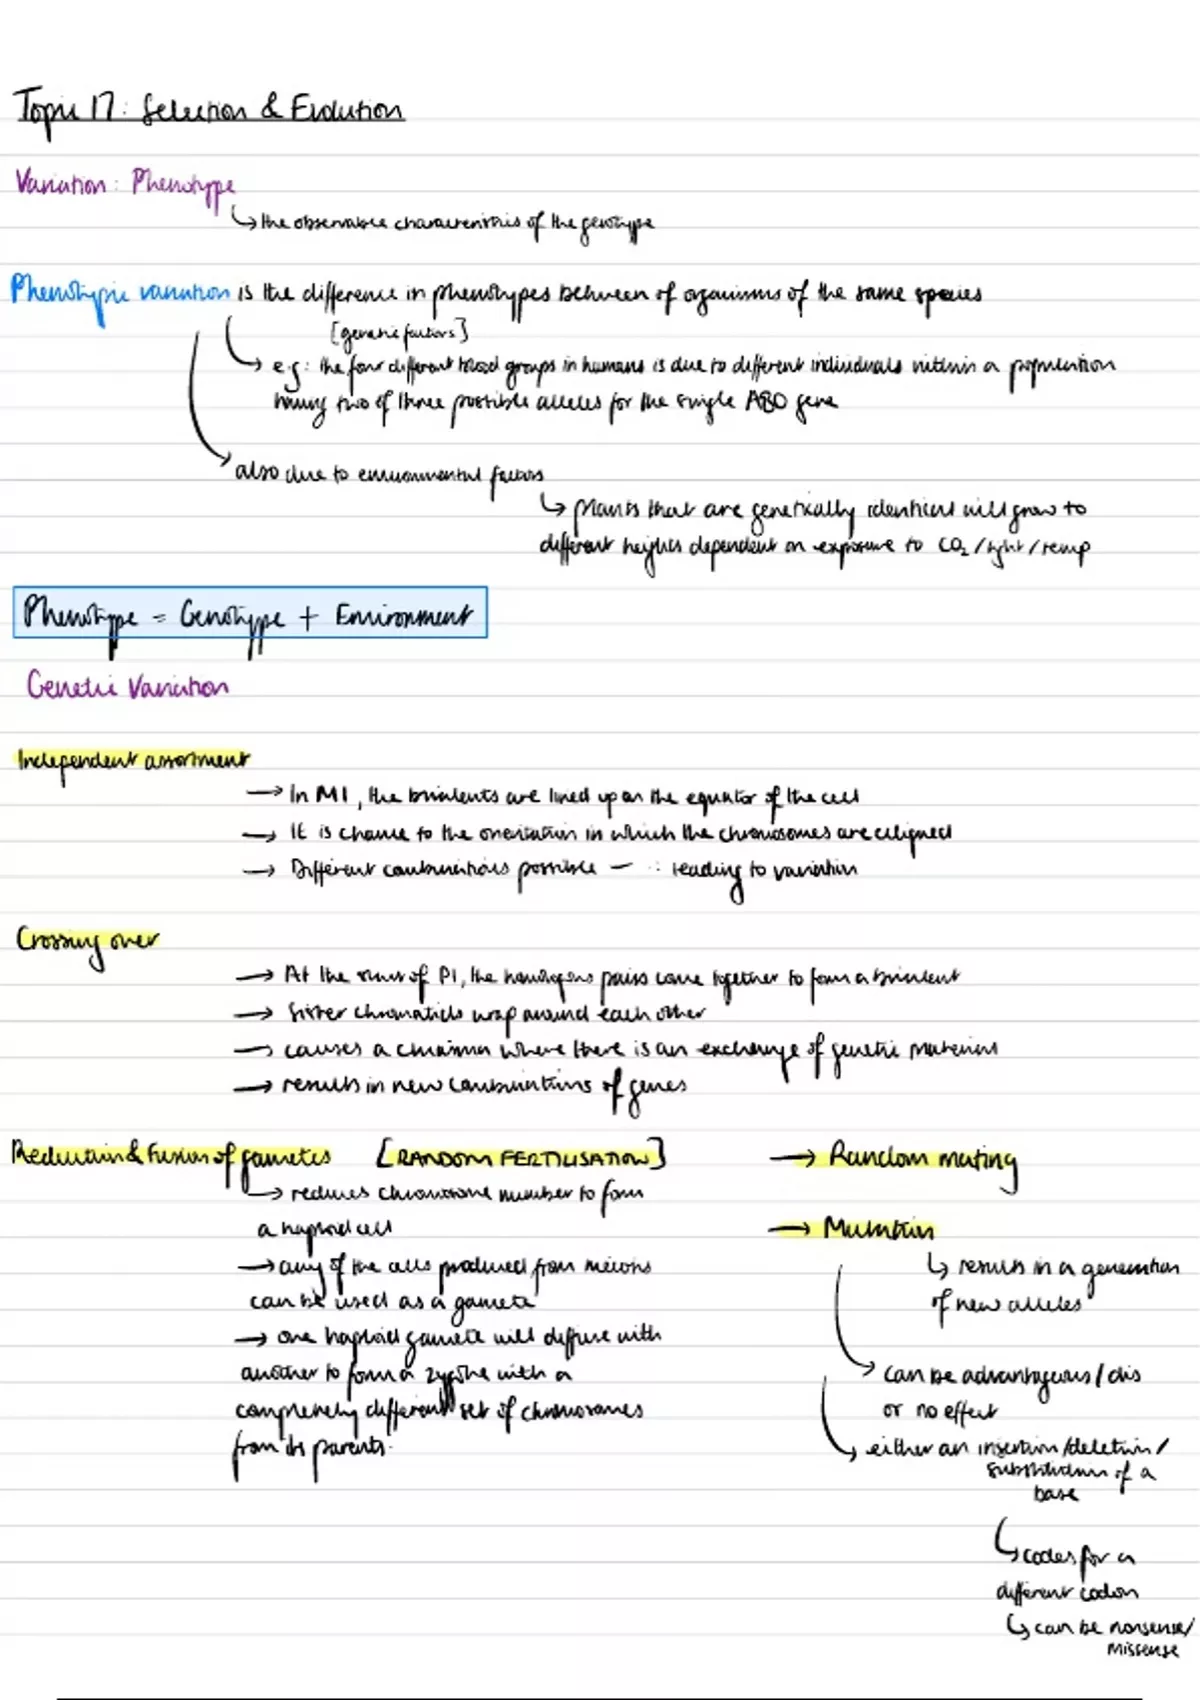 Topic 17: Selection & Evolution
Variation: Phenotype
↳ the observable characteristics of the genotype
Phenotypic variation is the difference in phenotypes between of organisms of the same species
[genetic factors]
↳ e.g: the four different blood groups in humans is due to different individuals within a population
having two of three possible alleles for the single ABO gene
↳ also due to environmental factors
↳ plants that are genetically identical will grow to
different heights dependent on exposure to CO2/light/temp
Phenotype = Genotype + Environment
Genetic Variation
Independent assortment
→ In M1, the bivalents are lined up on the equator of the cell
→ It is chance to the orientation in which the chromosomes are aligned
→ Different combinations possible – ∴ leading to variation
Crossing over
→ At the start of P1, the homologous pairs come together to form a bivalent
→ Sister chromatids wrap around each other
→ causes a chiasma where there is an exchange of genetic material
→ results in new combinations of genes
Reduction & fusion of gametes [RANDOM FERTILISATION]
↳ reduces chromosome number to form
a haploid cell
→ any of the cells produced from meiosis
can be used as a gamete
→ one haploid gamete will diffuse with
another to form a zygote with a
completely different set of chromosomes
from its parents.
→ Random mating
→ Mutation
↳ results in a generation
of new alleles
↳ can be advantageous/dis
or no effect
↳ either an insertion/deletion/
substitution of a
base
↳ codes for a
different codon
↳ can be nonsense/
missense